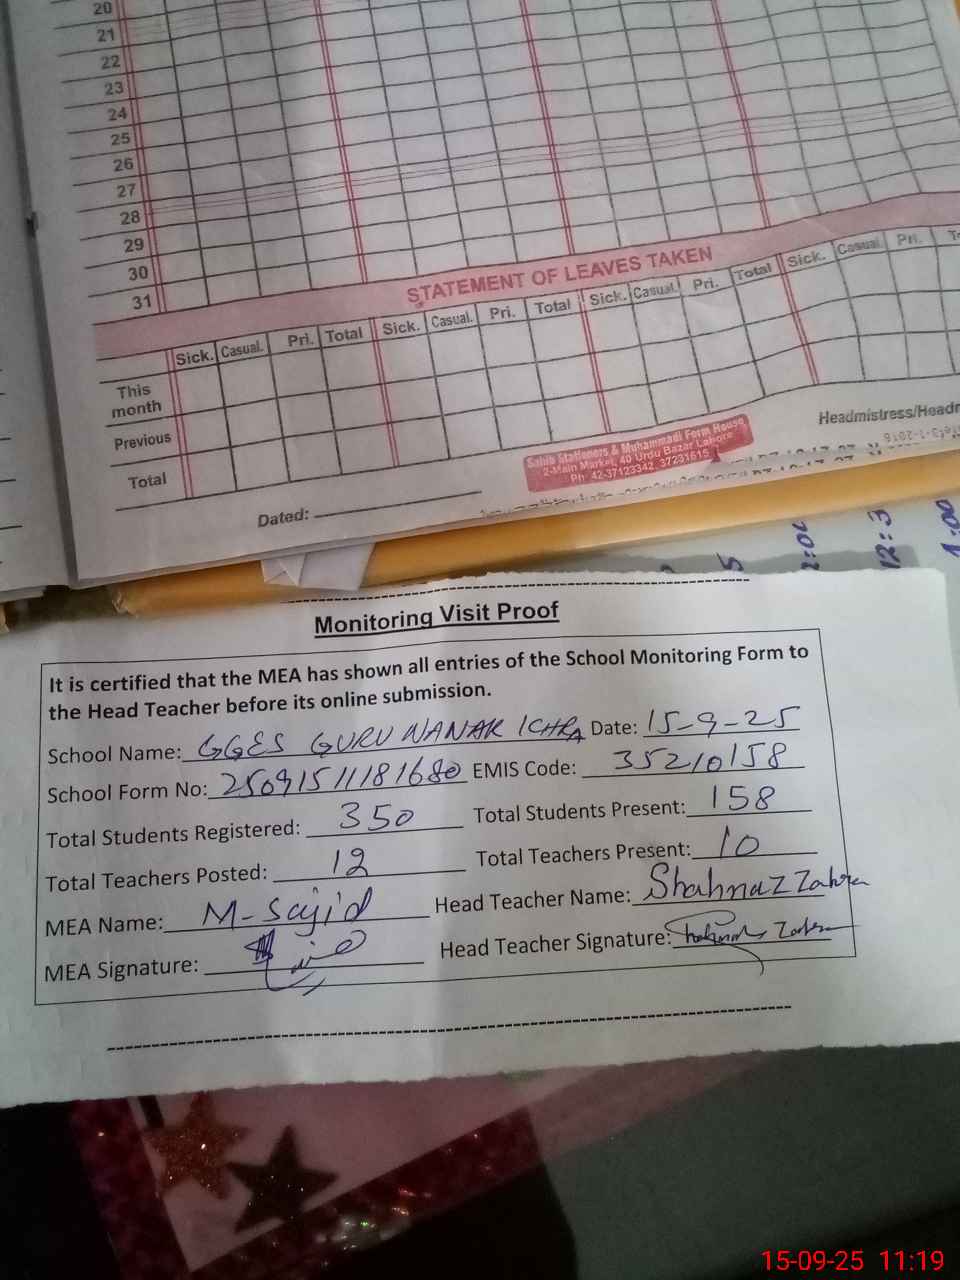 20
21
22
23
24
25
26
27
28
29
30
31
STATEMENT OF LEAVES TAKEN
Sick. Casual. Pri. Total Sick. Casual. Pri. Total Sick. Casual. Pri. Total Sick. Casual. Pri.
This month
Previous
Total
Headmistress/Head
Sahib Stationers & Muhammadi Form House
2-Main Market, 40 Urdu Bazar Lahore
Ph: 42-37123342, 37231615
Dated:
12:3
1:00
Monitoring Visit Proof
It is certified that the MEA has shown all entries of the School Monitoring Form to
the Head Teacher before its online submission.
School Name: GGES GURU NANAK ICHRA Date: 15-9-25
School Form No: 25091511181680 EMIS Code: 35210158
Total Students Registered: 350 Total Students Present: 158
Total Teachers Posted: 12 Total Teachers Present: 10
MEA Name: M-Sajid Head Teacher Name: Shahnaz Zahra
MEA Signature: Head Teacher Signature: Zahra
15-09-25 11:19